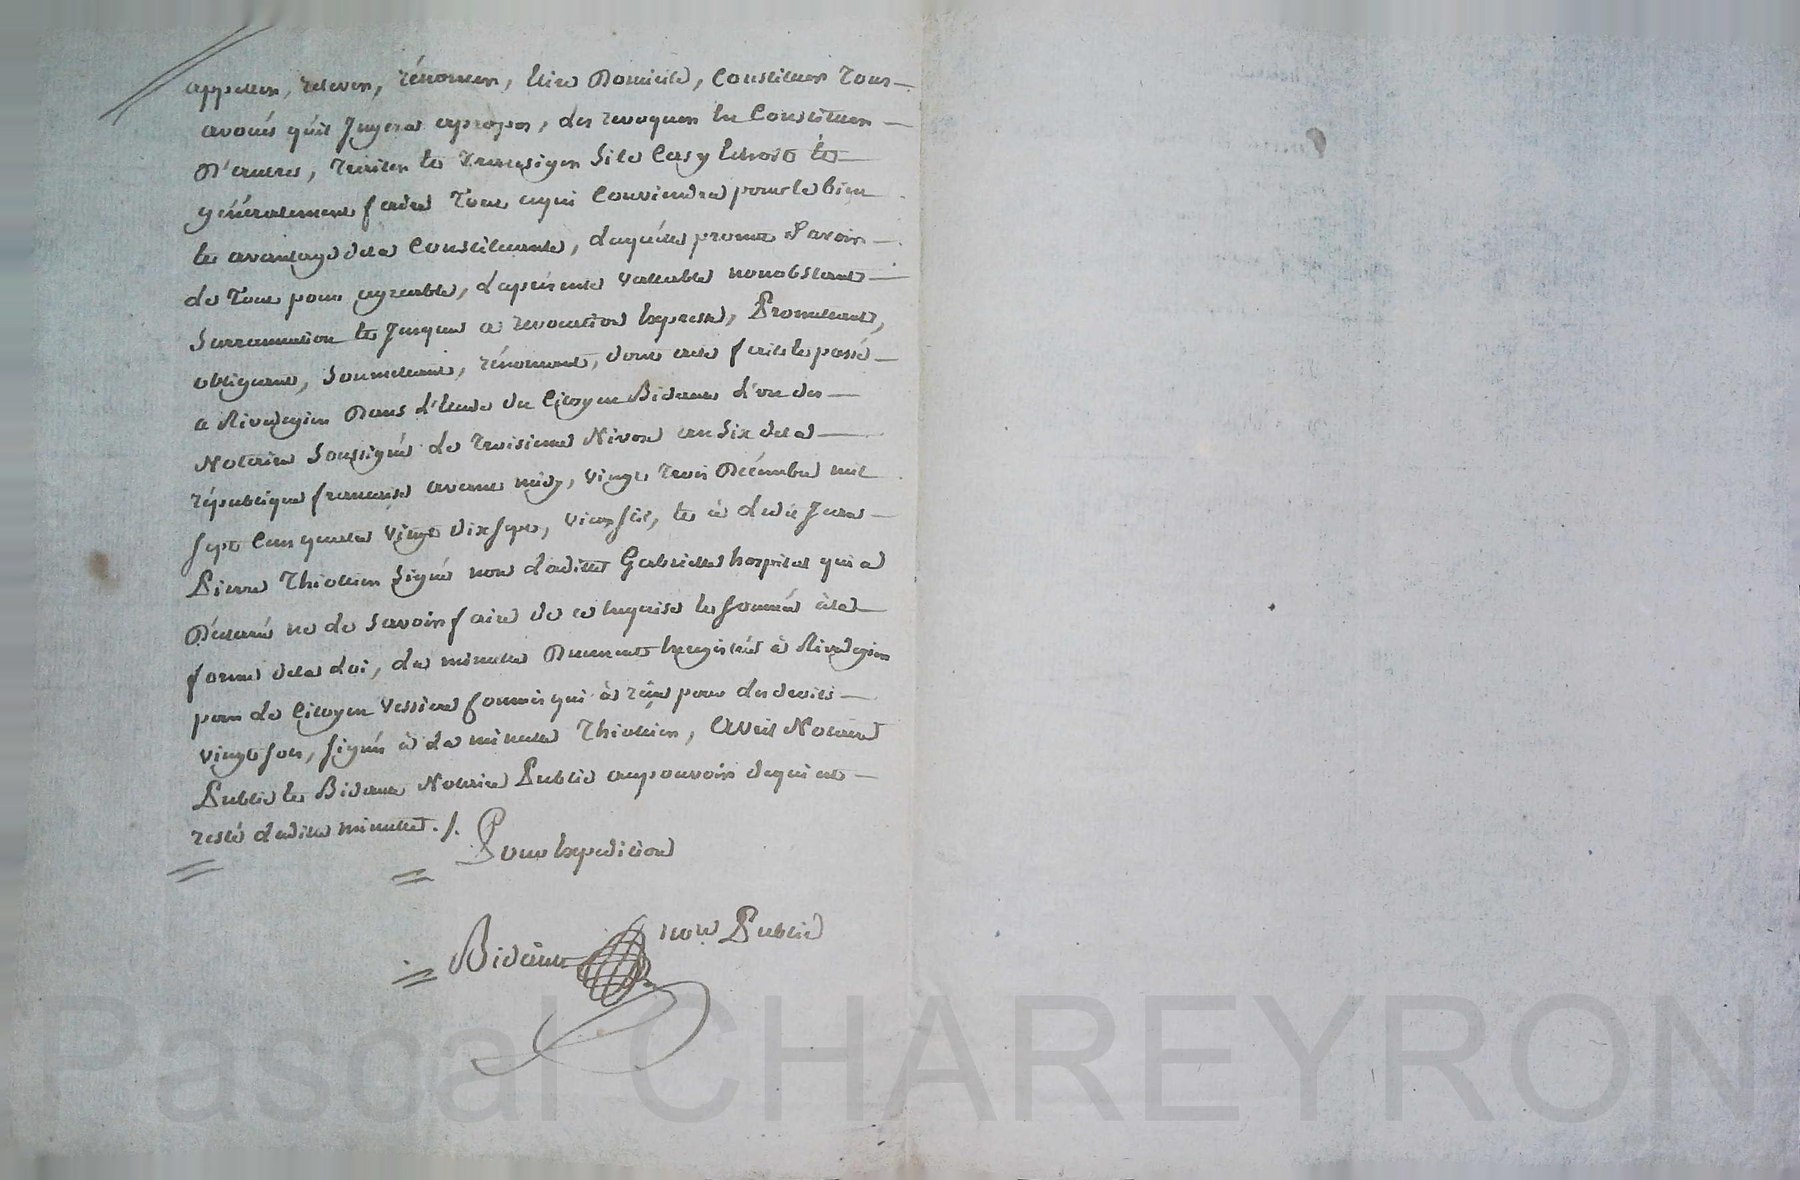 appeller, relever, rénoncer, Elire Domicile, Constituer Tous
avoués quil Jugera apropos, les revoquer En Constituer
D'autres, Traiter Et Transiger Si le Cas y Echoit Et
généralement faire Tout cequi Conviendra pour le bien
Et avantage dela Constituante, laquelle promet D'avoir
le Tout pour agreable, la présente Vallable nonobstant
Surrannation Et Jusques a revocation Expresse, Promettant,
obligeant, Soumettant, rénonceant, dont acte fait Et passé
a Rivedegier Dans l'Etude du Citoyen Bidaut l'un des
Notaires Soussignés le Troisieme Nivose an Six dela
république française avant midy, vingt Trois Décembre mil
Sept Cent quatre vingt dix Sept, vieux Stil, Et à ledit Jean
Pierre Thiollier Signé non laditte Gabrielle hospital qui a
Déclaré ne le Savoir faire de ce Enquise Et Sommée à la
forme dela Loi, la minute Duement Enregistrée à Rivedegier
par le Citoyen Vessiere fournier qui à réçu pour les droits
vingt Sols, Signés à la minute Thiollier, Notaire
Public Et Bidaut Notaire Public aupouvoir duquel est
resté laditte minute ./.
Pour Expedition
Bidaut nore Public
Pascal CHAREYRON